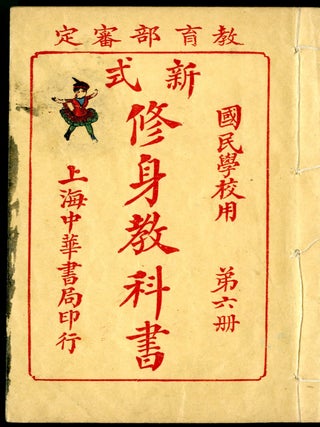 教育部審定
國民學校用　第六册
新式
修身教科書
上海中華書局印行